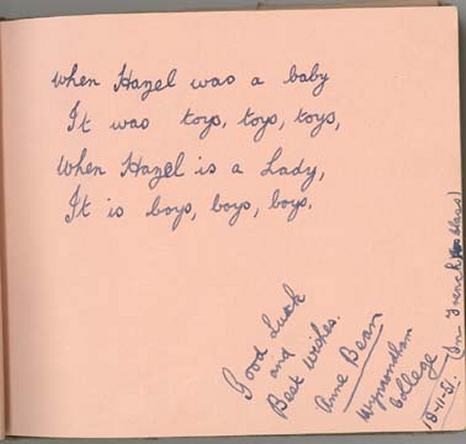 When Hazel was a baby
It was toys, toys, toys,
When Hazel is a Lady,
It is boys, boys, boys.
Good Luck
and
Best Wishes.
Anne Bean
Wymondham
College
18-11-51.
(In French class)